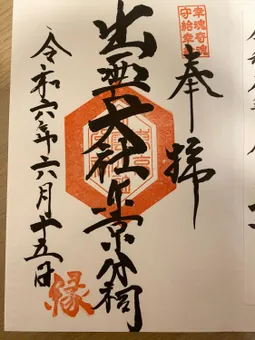 奉拝
幸魂奇魂
守給幸給
出雲大社東京分祠
令和六年六月十五日
縁